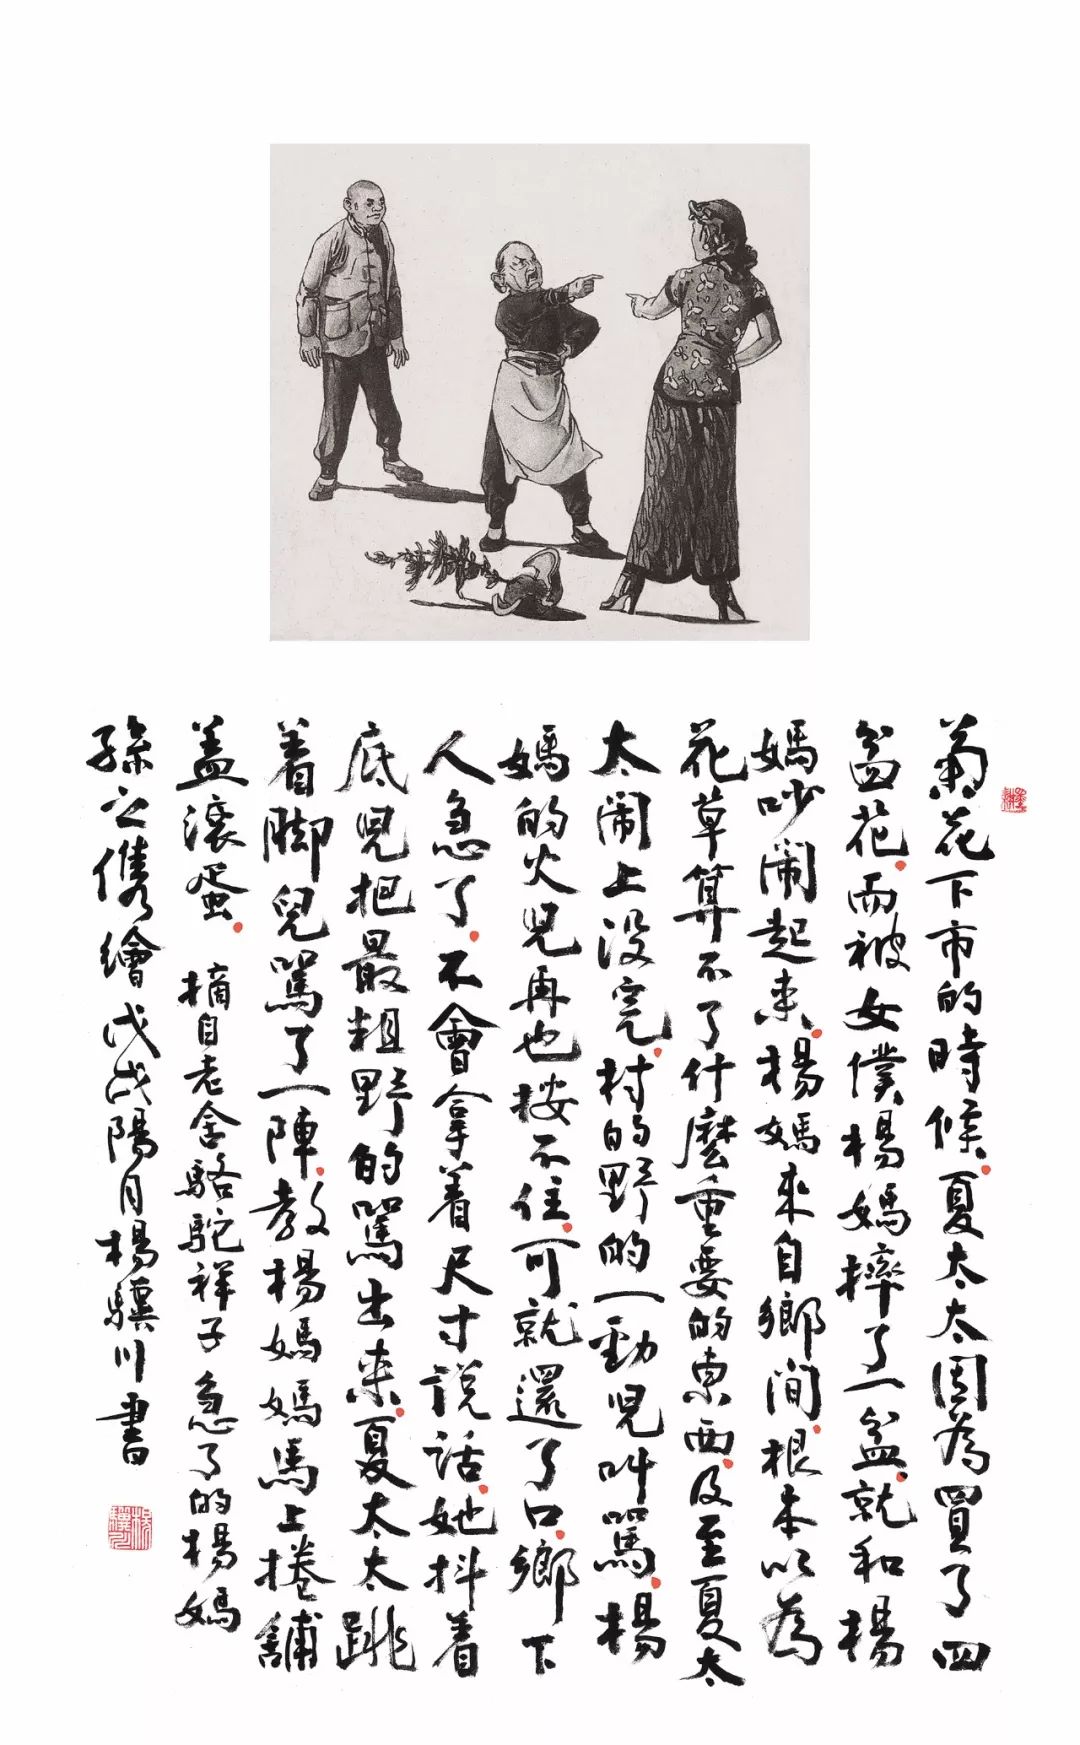 菊花下市的時候夏太太因為買了四
盆花而被女僕楊媽摔了一盆就和楊
媽吵闹起来楊媽来自鄉間根本以為
花草算不了什麼重要的東西及至夏太
太闹上没完村的野的一勁兒叫罵楊
媽的火兒再也按不住可就還了口鄉下
人急了不會拿着尺寸說話她抖着
底兒把最粗野的罵出来夏太太跳
着脚兒罵了一陣教楊媽媽馬上捲舖
盖滾蛋 摘自老舍駱駝祥子急了的楊媽
孫之儁繪戊戌陽月楊驥川書
楊驥川